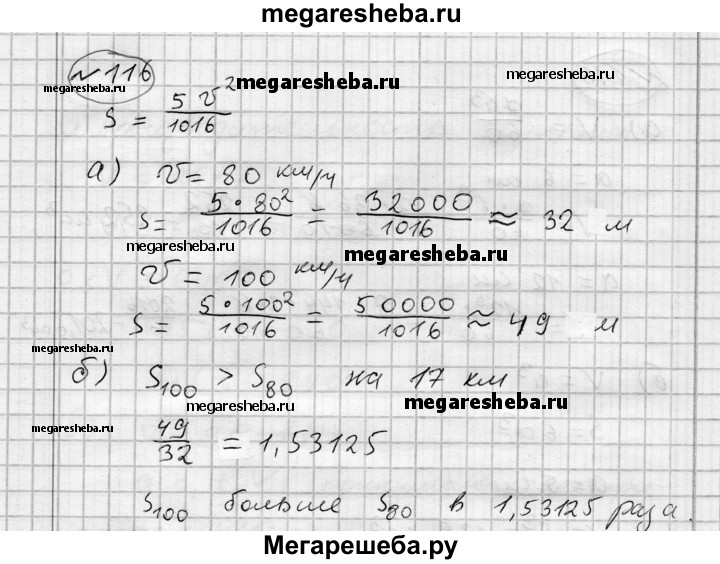 megaresheba.ru
№ 116
megaresheba.ru megaresheba.ru megaresheba.ru
S = 5 v² / 1016
а) v = 80 км/ч
S = 5 • 80² / 1016 = 32000 / 1016 ≈ 32 м
megaresheba.ru megaresheba.ru
v = 100 км/ч
S = 5 • 100² / 1016 = 50000 / 1016 ≈ 49 м
megaresheba.ru
б) S₁₀₀ > S₈₀ на 17 км
megaresheba.ru megaresheba.ru
49 / 32 = 1,53125
S₁₀₀ больше S₈₀ в 1,53125 раза.
Мегарешеба.ру